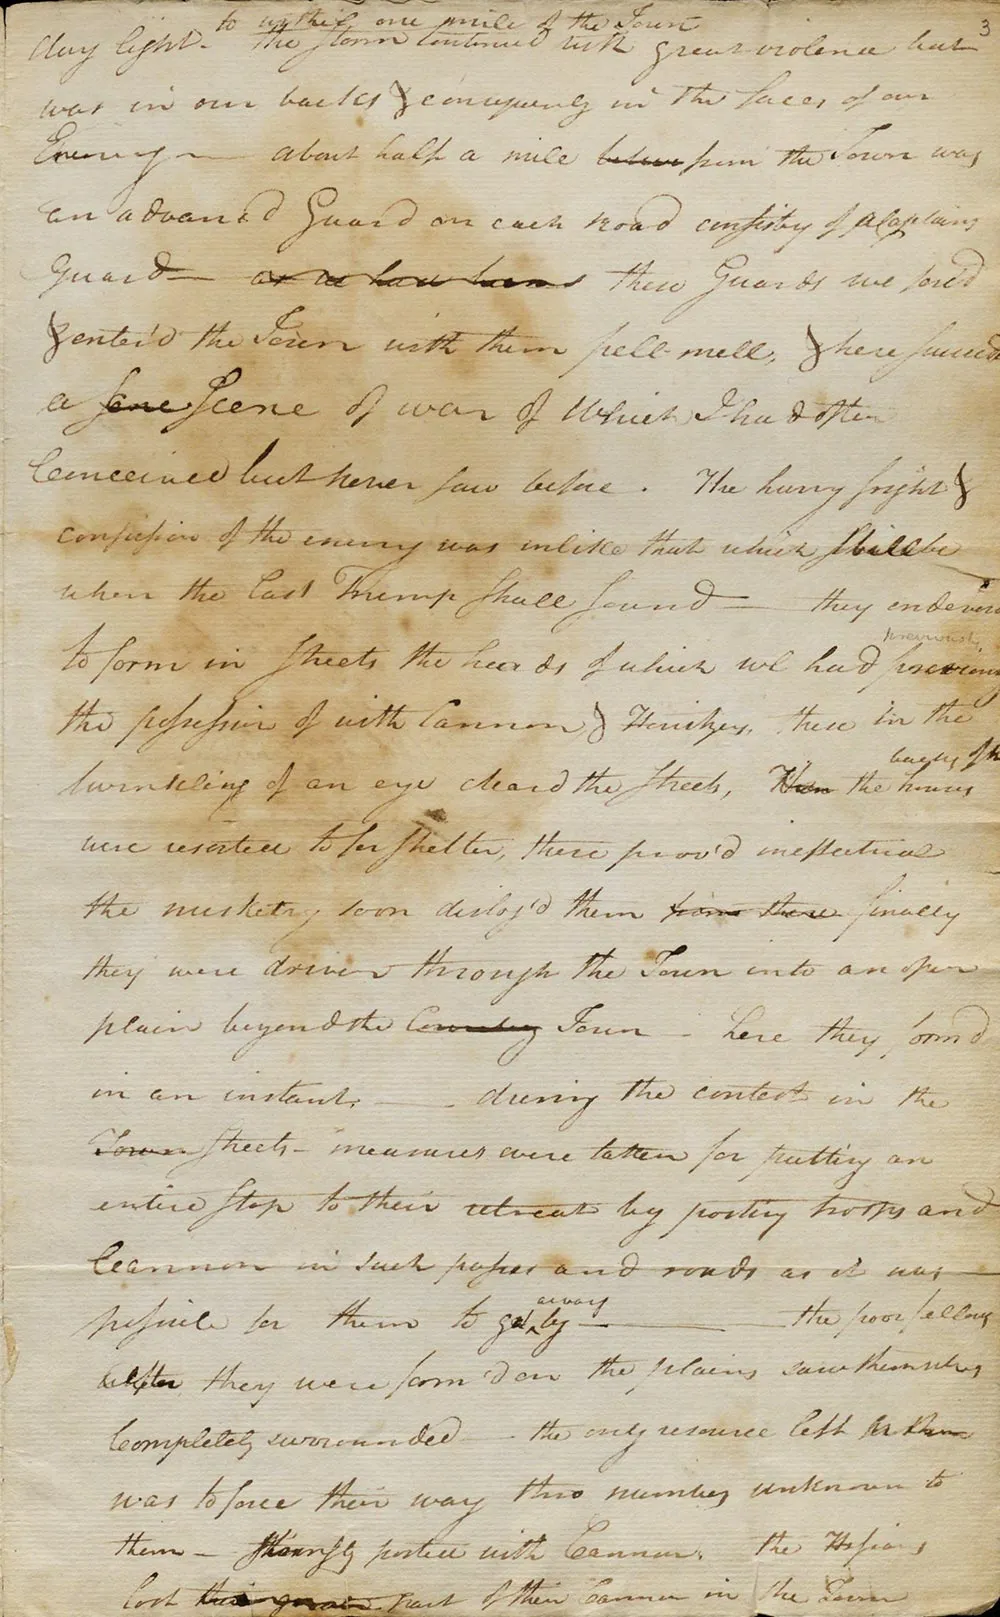 3
to within one mile of the Town
day light - the storm continued with great violence but
was in our backs & consequently in the faces of our
Enemy — about half a mile from the Town was
an advanc'd Guard on each road consisting of a Captains
Guard — these Guards we forc'd
& enter'd the Town with them pell-mell, & here succeeded
a Sene Scene of war of Which I had often
Conceived but never saw before. The hurry fright &
confusion of the enemy was unlike that which shall be
when the last Trump shall sound — they endevord
previously
to form in streets the heads of which we had previously
the possession of with Cannon & Howitzers, these in the
backs of the
twinkling of an eye cleard the streets, the houses
were resorted to for shelter, these prov'd ineffectual
the musketry soon dislog'd them from there finally
they were driven through the Town into an open
plain beyond the Country Town - here they form'd
in an instant. — during the contest in the
Town streets - measures were taken for putting an
entire stop to their retreat by posting troops and
Cannon in such passes and roads as it was
away
possible for them to get by — the poor fellows
after they were form'd on the plains saw themselves
Completely surrounded — the only resource left for them
was to force their way thro numbers unknown to
them — strongly posted with Cannon. the Hessians
lost part of their Cannon in the Town